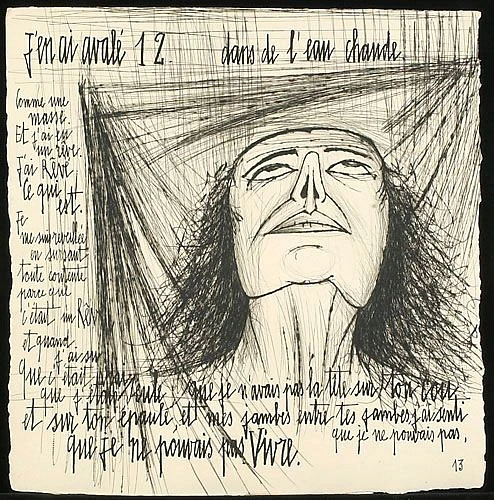 J'en ai avalé 12. dans de l'eau chaude.
Comme une
masse.
Et j'ai eu
un rêve.
J'ai Rêvé
Ce qui
est.
Je
me suis réveillée
en sursaut
toute contente
parce que
c'était un Rêve
et quand
j'ai su
que c'était vrai
que j'étais seule que je n'avais pas la tête sur ton cou
et sur ton épaule, et mes jambes entre tes jambes j'ai senti
que je ne pouvais pas,
que je ne pouvais pas, Vivre.
13